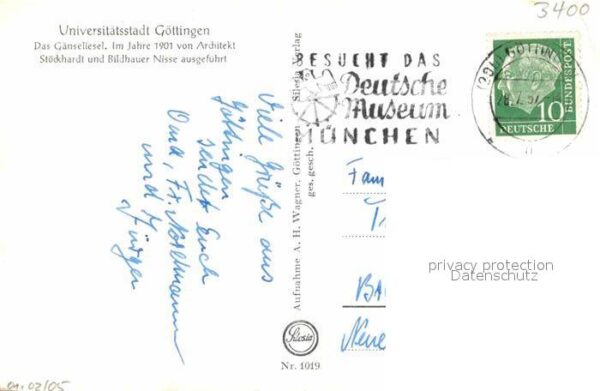 3400
Universitätsstadt Göttingen
Das Gänseliesel. Im Jahre 1901 von Architekt
Stöckhardt und Bildhauer Nisse ausgeführt
BESUCHT DAS
Deutsche
Museum
MÜNCHEN
10
DEUTSCHE
BUNDESPOST
Viele Grüße aus
Göttingen
sendet Euch
Oma, Fr.
und Jürgen
Aufnahme A. H. Wagner, Göttingen Silesia Verlag
ges. gesch.
Silesia
Nr. 1019
Fam
Ba
Neue
privacy protection
Datenschutz
01-02/05